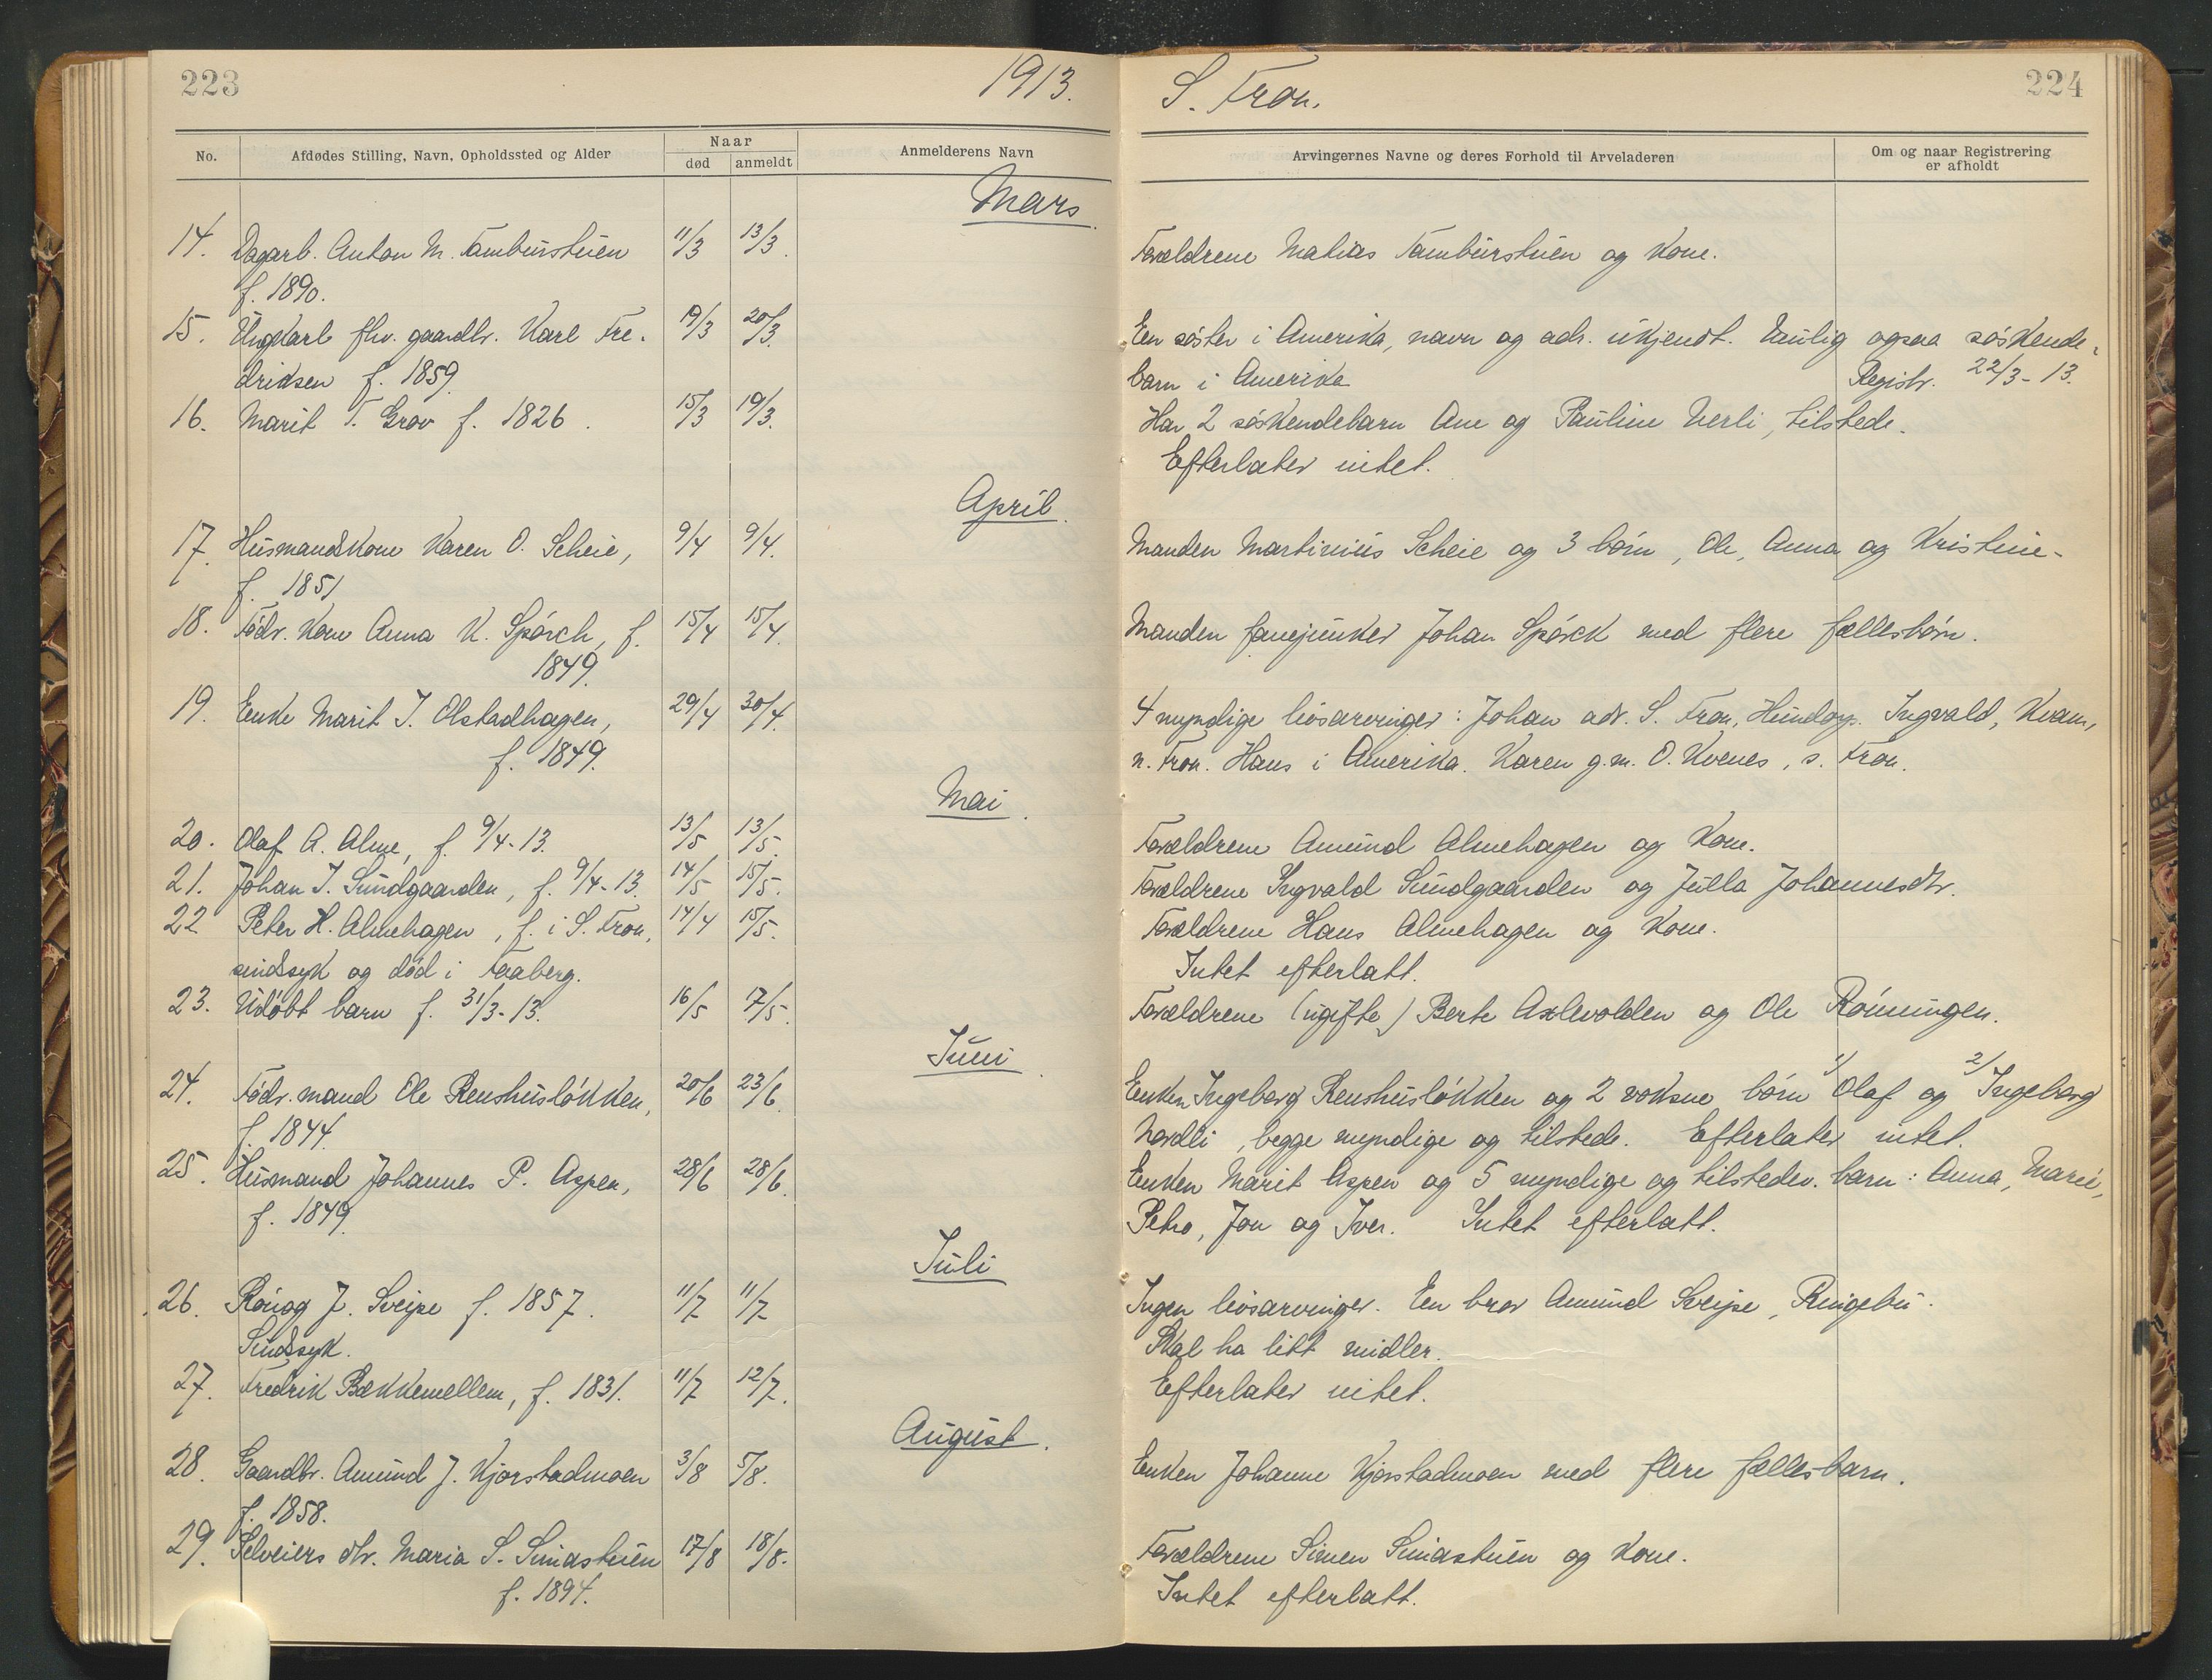 223
1913.
S. Fron.
224
No.
Afdødes Stilling, Navn, Opholdssted og Alder
Naar
død
anmeldt
Anmelderens Navn
Arvingernes Navne og deres Forhold til Arveladeren
Om og naar Registrering
er afholdt
Mars
14. Dagarb. Anton M. Tamburstuen 11/3 13/3. Forældrene Matias Tamburstuen og kone.
f. 1890.
15. Ungkarl fhv. gaardbr. Karl Fre- 19/3 20/3. Een søster i Amerika, navn og adr. ukjendt. Emilig ogsaa søskende-
driksen f. 1859. barn i Amerika Registr. 22/3-13.
16. Marit T. Grov f. 1826. 15/3 19/3. Har 2 søskendebarn Ane og Pauline Nerli, tilstede.
Efterlater intet.
April.
17. Husmandskone Karen O. Scheie, 9/4 9/4. Manden Martinius Scheie og 3 børn, Ole, Anna og Kristine.
f. 1851
18. Fødr. kone Anna K. Spørck, f. 15/4 15/4. Manden fanejunker Johan Spørck med flere fællesbørn.
1849.
19. Enke Marit J. Olstadhagen, 29/4 30/4. 4 myndige livsarvinger: Johan adr. S. Fron, Hundorp. Ingvald, Kvam,
f. 1849. n. Fron. Hans i Amerika. Karen g.m. O. Kvenes, s. Fron.
Mai.
20. Olaf A. Alme, f. 9/4-13. 13/5 13/5. Forældrene Amund Almehagen og kone.
21. Johan I. Sundgaarden, f. 9/4-13. 14/5 15/5. Forældrene Ingvald Sundgaarden og Julla Johannesdtr.
22 Peter H. Almehagen, f. i S. Fron, 14/4 15/5. Forældrene Hans Almehagen og kone.
sindssyk og død i Faaberg. Intet efterlatt.
23. Udøbt barn f. 31/3-13. 16/5 17/5. Forældrene (ugifte) Berte Axlevolden og Ole Rønningen.
Juni.
24. Fødr. mand Ole Renshusløkken, 20/6 23/6. Enken Ingeborg Renshusløkken og 2 voksne børn 1/ Olaf og 2/ Ingeborg
f. 1844. Nordli, begge myndige og tilstede. Efterlater intet.
25. Husmand Johannes P. Aspen, 28/6 28/6. Enken Marit Aspen og 5 myndige og tilstedev. barn: Anna, Marie,
f. 1849. Petra, Jon og Iver. Intet efterlatt.
Juli
26. Rønog J. Sveipe f. 1857. 11/7 11/7 Ingen livsarvinger. En bror Amund Sveipe, Ringebu.
Sindssyk. Skal ha litt midler.
27. Fredrik Bækkemellem, f. 1831. 11/7 12/7. Efterlater intet.
August.
28. Gaardbr. Amund J. Kjorstadmoen 3/8 5/8. Enken Johanne Kjorstadmoen med flere fælles-barn.
f. 1858.
29. Selveiers dtr. Maria S. Simastuen 17/8 18/8. Forældrene Simen Simastuen og kone.
f. 1894. Intet efterlatt.